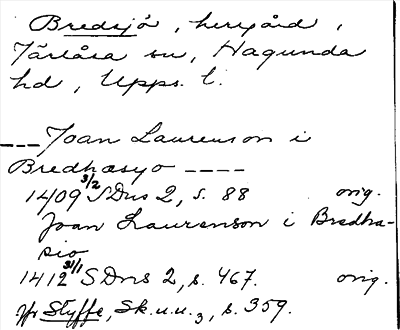 Bredsjö, herrgård,
Järlåsa sn, Hagunda
hd, Upps. l.
---Joan Laurenson i
Bredhæsyo ----
1409 3/2 SDns 2, s. 88 orig.
Joan Laurenson i Bredha-
sio
1412 31/1 SDns 2, s. 467. orig.
Jfr Styffe, Sk.u.u.3, s. 359.